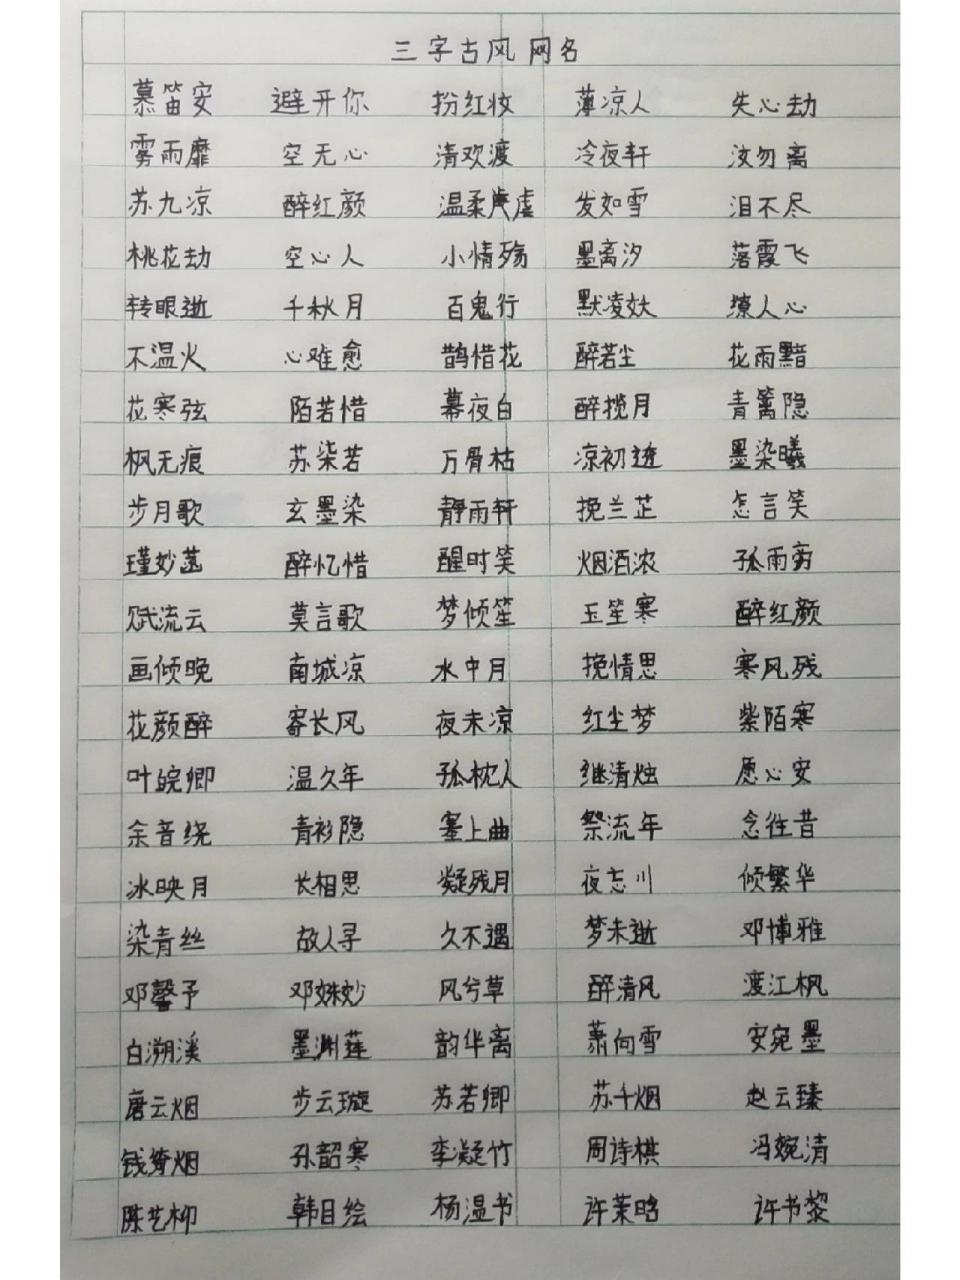 三字古风网名
慕笛安 避开你 扮红妆 薄凉人 失心劫
雾雨靡 空无心 清欢渡 冷夜轩 汝勿离
苏九凉 醉红颜 温柔 发如雪 泪不尽
桃花劫 空心人 小情殇 墨离汐 落霞飞
转眼逝 千秋月 百鬼行 默凌妖 撩人心
不温火 心难愈 鹊惜花 醉若尘 花雨黯
花寒弦 陌若惜 幕夜白 醉揽月 青篱隐
枫无痕 苏柒若 万骨枯 凉初 墨染曦
步月歌 玄墨染 静雨轩 挽兰芷 怎言笑
瑾妙菡 醉忆惜 醒时笑 烟酒浓 孤雨
赋流云 莫言歌 梦倾笙 玉笙寒 醉红颜
画倾晚 南城凉 水中月 挽情思 寒风残
花颜醉 寄长风 夜未凉 红尘梦 紫陌寒
叶皖卿 温久年 孤枕人 继清烛 愿心安
余音绕 青衫隐 塞上曲 祭流年 念往昔
冰映月 长相思 凝残月 夜忘川 倾繁华
染青丝 故人寻 久不遇 梦未逝 邓博雅
邓馨予 邓姝妙 风兮草 醉清风 渡江枫
白溯溪 墨渊莲 韵华离 萧向雪 安宛墨
唐云烟 步云璇 苏若卿 苏千烟 赵云臻
钱绮烟 孔韶寒 李凝竹 周诗棋 冯婉清
陈艺柳 韩目绘 杨温书 许茉晗 许书黎